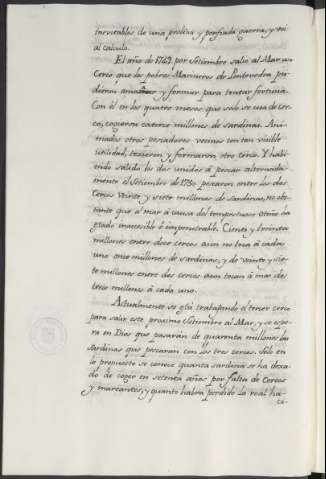 inevitables de una prolixa y porfiada guerra, y vea
al calculo.
El año de 1749. por Setiembre salio al Mar un
Cerco que los pobres Marineros de Pontevedra pu-
dieron amañar y formar para tentar fortuna.
Con él en los quatro meses que solo se usa de cer-
co, cogieron catorce millones de sardinas. Ani-
mados otros pescadores vecinos con tan visible
utilidad, texieron y formaron otro cerco. Y habi-
endo salido los dos unidos á pescar alternada-
mente el Setiembre de 1750. pescaron entre los dos
Cercos Veinte y siete millones de Sardinas, no obs-
tante que el mar á causa del tempestuoso otoño ha
estado inaccesible ó impenetrable. Ciento y treinta
millones entre doce cercos aun no toca á cada
uno once millones de sardinas, y de veinte y sie-
te millones entre dos cercos aun tocan á mas de
trece millones á cada uno.
Actualmente se está trabajando el tercer cerco
para salir este proximo Setiembre al Mar, y se espe-
ra en Dios que pasarán de quarenta millones las
sardinas que pescaran con los tres cercos. Solo en
lo propuesto se conoce quanta sardina se ha dexa-
do de coger en setenta años por falta de cercos
y mareantes, y quanto habrá perdido la real ha-
ci-